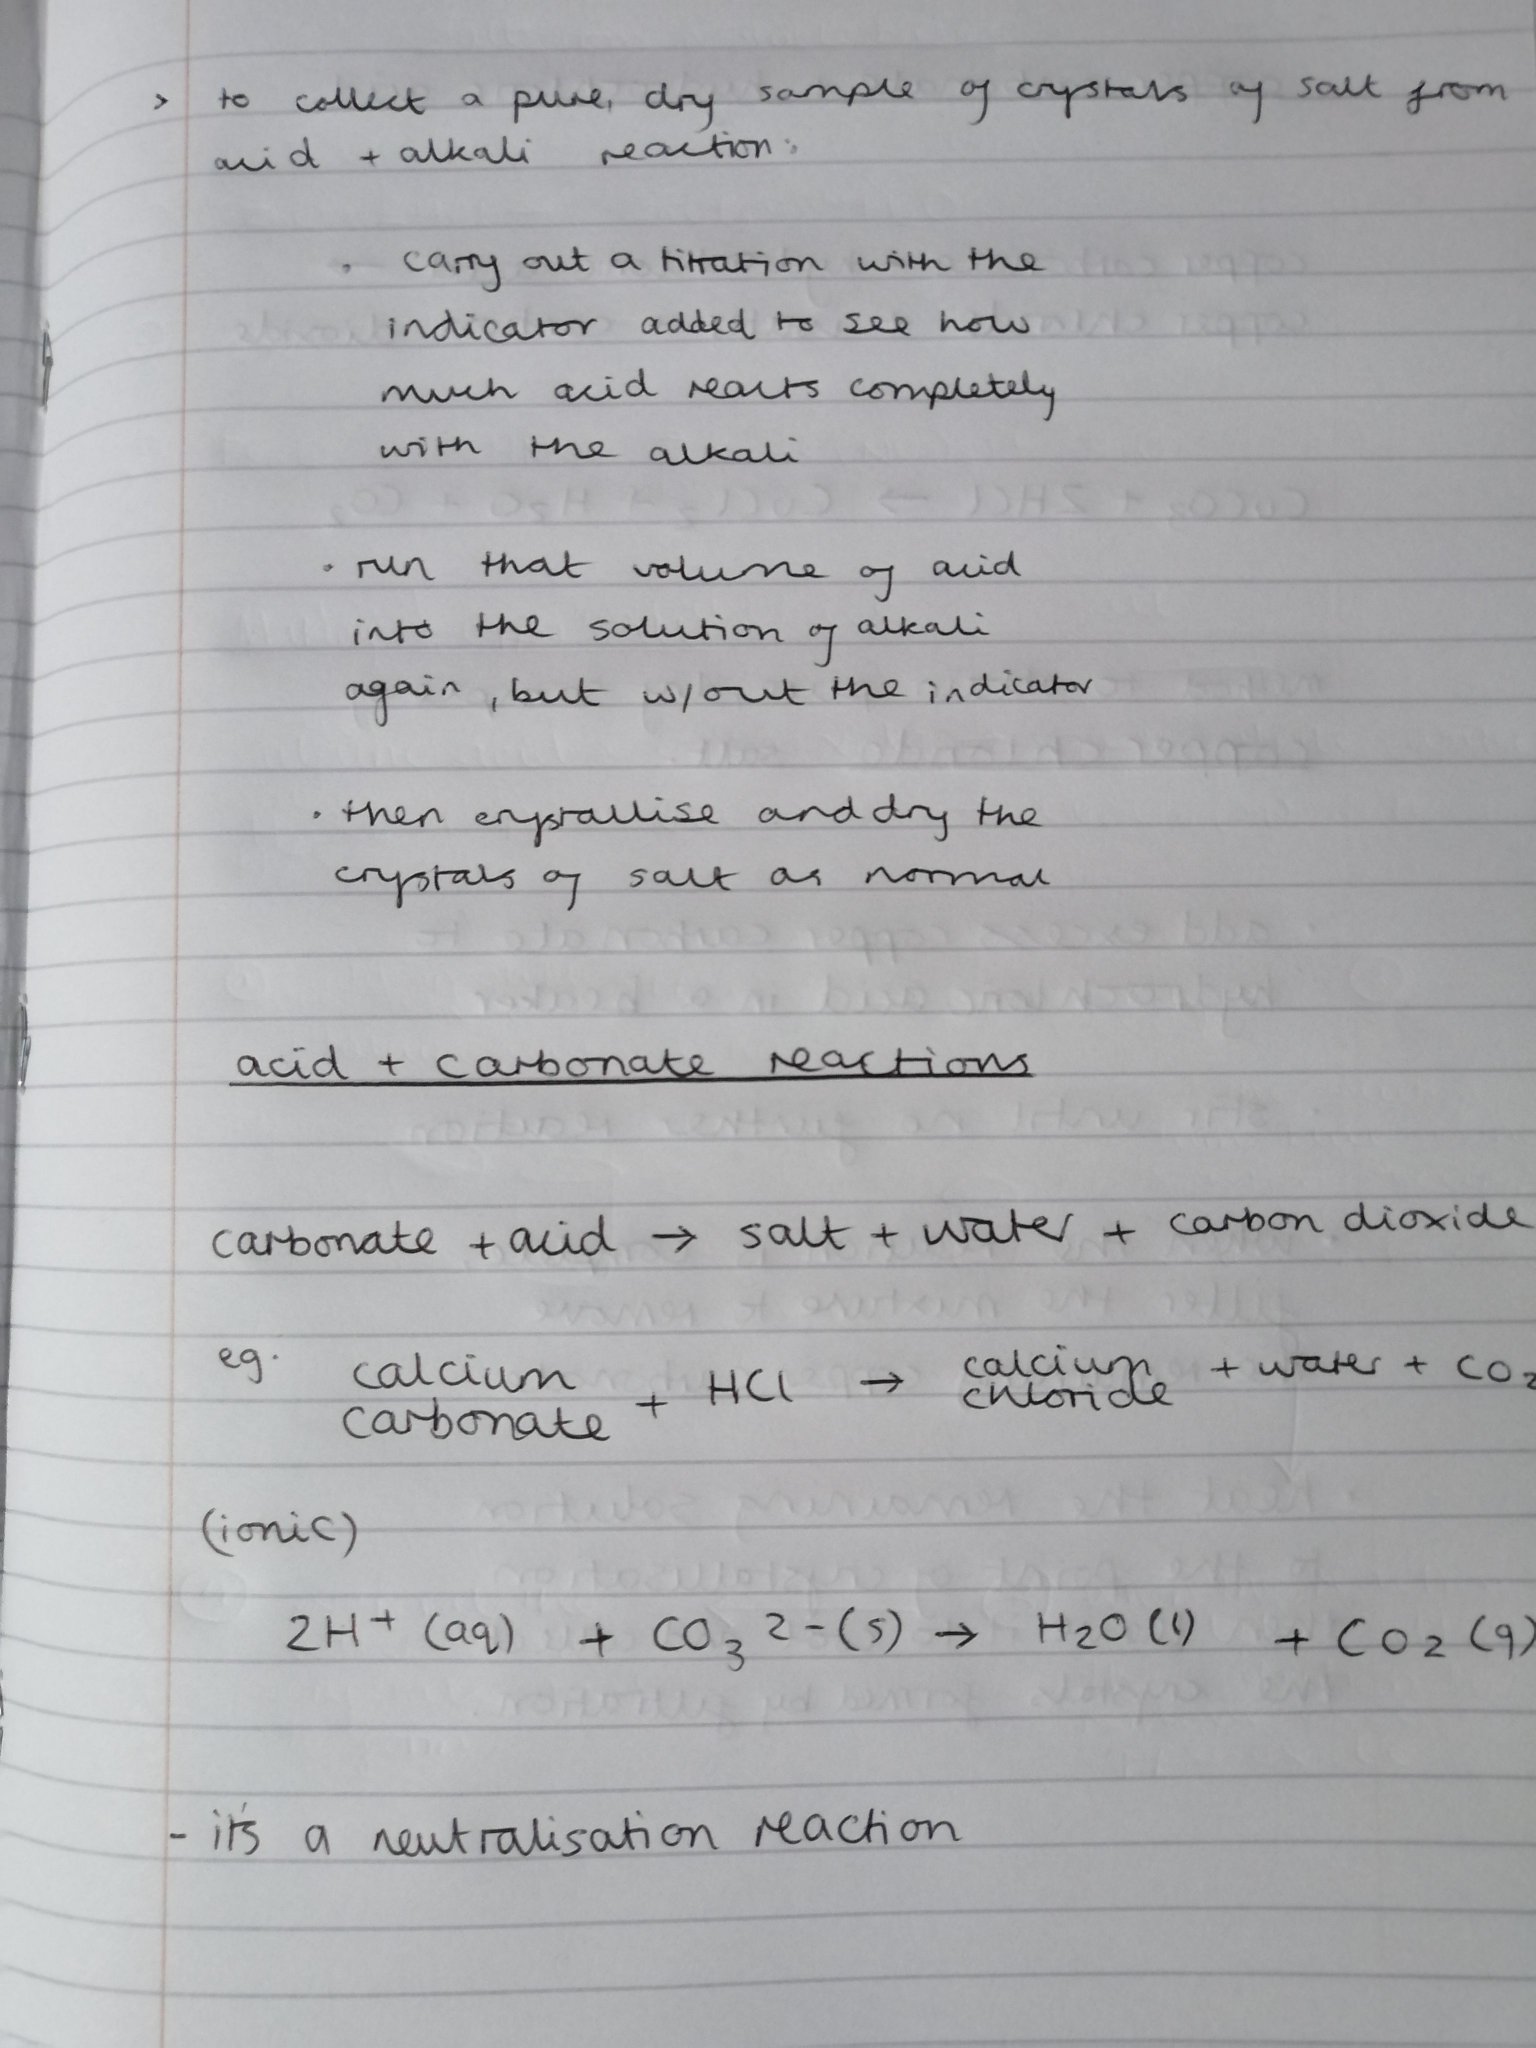 > to collect a pure, dry sample of crystals of salt from
acid + alkali reaction:
· carry out a titration with the
indicator added to see how
much acid reacts completely
with the alkali
· run that volume of acid
into the solution of alkali
again, but w/out the indicator
· then crystallise and dry the
crystals of salt as normal
acid + carbonate reactions
carbonate + acid → salt + water + carbon dioxide
eg. calcium carbonate + HCl → calcium chloride + water + CO₂
(ionic)
2H⁺ (aq) + CO₃ 2- (s) → H₂O (l) + CO₂ (g)
- it's a neutralisation reaction